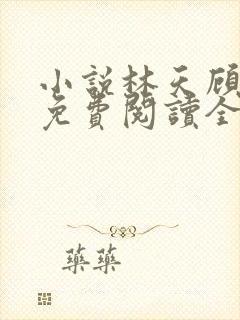 小說林天顧
免費閱讀全
藥藥